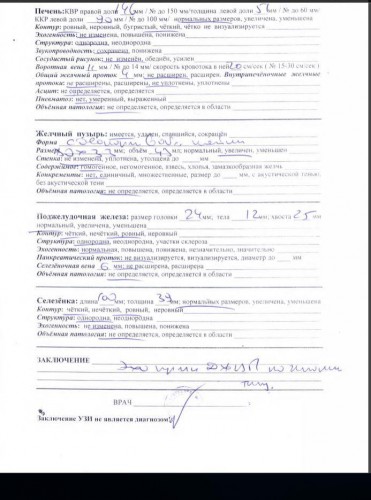 Печень: КВР правой доли мм / № до 150 мм/толщина левой доли мм / № до 60 мм/
ККР левой доли 90 мм / № до 100 мм/ нормальных размеров, увеличена, уменьшена
Контур: ровный, неровный, бугристый, чёткий, чётко не визуализируется
Эхогенность: не изменена, повышена, понижена
Структура: однородна, неоднородна
Звукопроводность: сохранена, понижена
Сосудистый рисунок: не изменён, обеднён, усилен
Воротная вена 11 мм / № до 14 мм/ скорость кровотока в ней см/сек ( № 15-30 см/сек )
Общий желчный проток 4 мм; не расширен, расширен. Внутрипечёночные желчные
протоки: не расширены, расширены, не уплотнены, уплотнены
Асцит: не определяется, определяется
Пневматоз: нет, умеренный, выраженный
Объёмная патология: не определяется, определяется в области
Желчный пузырь: имеется, удален, спавшийся, сокращён
Форма с
Размер мм; объём мл; нормальный, увеличен, уменьшен
Стенка: не изменена, уплотнена, утолщена до мм
Содержимое: гомогенное, негомогенное, взвесь, хлопья, замазкообразная желчь
Конкременты: нет, единичный, множественные, размер до мм, с акустической тенью
без акустической тени
Объёмная патология: не определяется, определяется в области
Поджелудочная железа: размер головки 24 мм; тела 12 мм; хвоста 25 мм
нормальный, увеличена, уменьшена
Контур: чёткий, нечёткий, ровный, неровный
Структура: однородна, неоднородна, участки склероза
Эхогенность: нормальная, повышена, понижена, незначительно, значительно
Панкреатический проток: не визуализируется, визуализируется, диаметр до мм
Селезёночная вена 6 мм; не расширена, расширена
Объёмная патология: не определяется, определяется в области
Селезёнка: длина мм; толщина 39 мм; нормальных размеров, увеличена, уменьшена
Контур: чёткий, нечёткий, ровный, неровный
Структура: однородна, неоднородна
Эхогенность: не изменена, повышена, понижена
Объёмная патология: не определяется, определяется в области
ЗАКЛЮЧЕНИЕ Эхо по
типу.
ВРАЧ
Заключение УЗИ не является диагнозом!